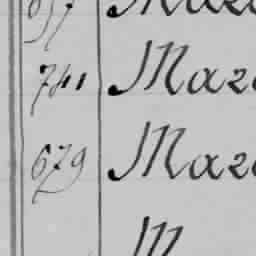 657 Maz
741 Maz
679 Maz
M